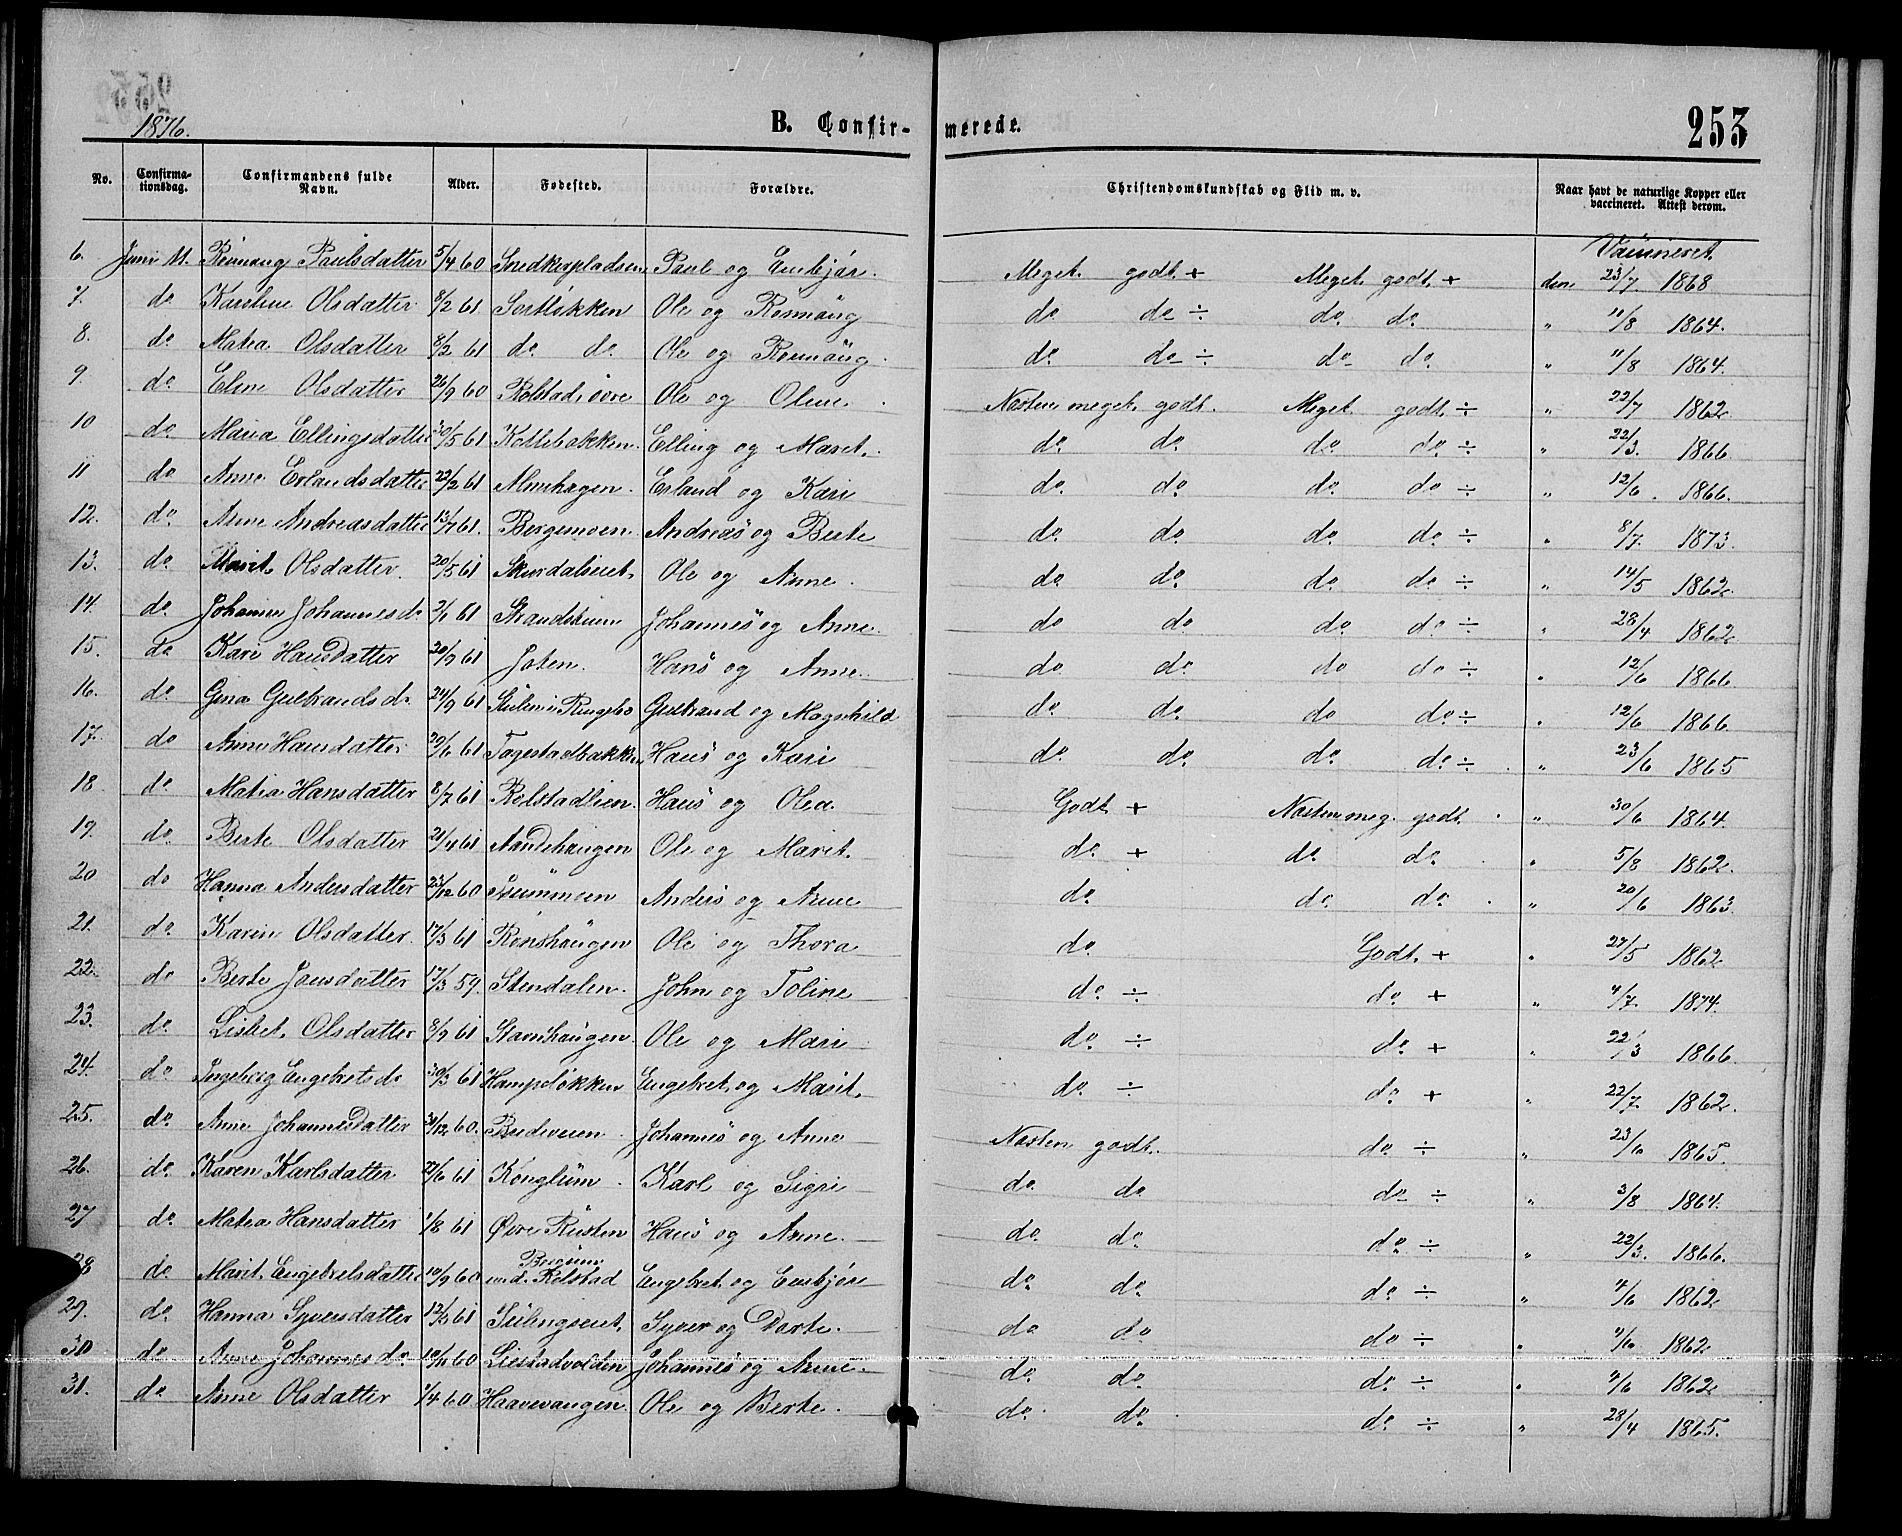 1876.
B. Confirmerede.
253
No. Confirmationsdag. Confirmandens fulde Navn. Alder. Fødested. Forældre. Christendomskundskab og Flid m. v. Naar havt de naturlige Kopper eller vaccineret. Attest derom.
Vaccineret
6. Juni 11. Rønnaug Paulsdatter 5/4 60 Snedkerpladsen Paul og Embjør. Meget godt + Meget godt + den 23/7 1868
7. do Karoline Olsdatter 8/2 61 Sortløkken Ole og Rønnaug do do ÷ do do " 11/8 1864.
8. do Matea Olsdatter 8/2 61 do do Ole og Rønnaug. do do ÷ do do " 11/8 1864.
9. do Eline Olsdatter 26/9 60 Rolstad øvre Ole og Oline. Næsten meget godt. Meget godt ÷ " 22/7 1862
10 do Maria Ellingsdatter 30/5 61 Kollebakken. Elling og Marit. do do do do ÷ " 22/3. 1866.
11 do Anne Erlandsdatter 22/2 61 Almehagen. Erland og Kari do do do do ÷ " 12/6. 1866.
12. do Anne Andreasdatter 13/7 61. Bergemoen Andreas og Berte do do do do ÷ " 8/7. 1873.
13. do Marit Olsdatter. 20/5 61 Skurdalseiet. Ole og Anne. do do do do ÷ " 14/5 1862.
14. do Johanne Johannesd. 2/1 61 Strandstuen Johannes og Anne. do do do do ÷ " 28/4 1862
15. do Kari Hansdatter 20/9 61 Joten. Hans og Anne. do do do do ÷ " 12/6 1866
16. do Gina Gulbrandsd. 24/9 61 Stulen i Ringebo Gulbrand og Magnhild do do do do ÷ " 12/6 1866.
17. do Anne Hansdatter 20/6 61 Fogestadbakken Hans og Kari do do do do ÷ " 23/6 1865
18 do Matia Hansdatter 8/7 61 Rolstadlien. Hans og Olea Godt + Næsten meg. godt. " 30/6 1864.
19. do Berte Olsdatter 21/4 61 Aandehaugen Ole og Marit. do + do do. " 5/8 1862.
20 do Hanna Andersdatter 23/12 60 Anders og Anne do do do. " 20/6 1863.
21. do Karen Olsdatter. 17/3 61 Rønshaugen Ole og Thora do Godt + " 27/5 1862
22. do Berte Jonsdatter 17/3 59. Stendalen. John og Toline do ÷ do + " 4/7. 1874.
23. do Lisbet Olsdatter 8/9 61 Stavnshaugen. Ole og Mari do ÷ do + " 22/3 1866.
24. do Ingeborg Engebretsd. 30/3 61 Hampeløkken Engebret og Marit. do ÷ do + " 22/7. 1862.
25. do Anne Johannesdatter 31/12 60. Budeveien. Johannes og Anne Næsten godt. do ÷ " 23/6 1865.
26. do Karen Karlsdatter 27/6 61 Konglum. Karl og Sigri do do do ÷ " 3/8 1864.
27 do Matea Hansdatter 1/8 61 Øvre Rusten Hans og Anne. do do do ÷ " 22/3. 1866.
28 do Marit Engebretsdatter 10/9 60 und. Rolstad Engebret og Embjør do do do ÷ " 4/6 1862
29. do Hanna Syversdatter 12/3 61 Sulingseiet. Syver og Dorte. do do do ÷ " 4/6. 1862
30 do Anne Johannesd. 10/11 60 Listadvolden Johannes og Anne. do do do ÷ " 4/6 1862
31. do Anne Olsdatter 1/4 60 Haavevangen. Ole og Berte. do do do ÷ " 28/4 1865.